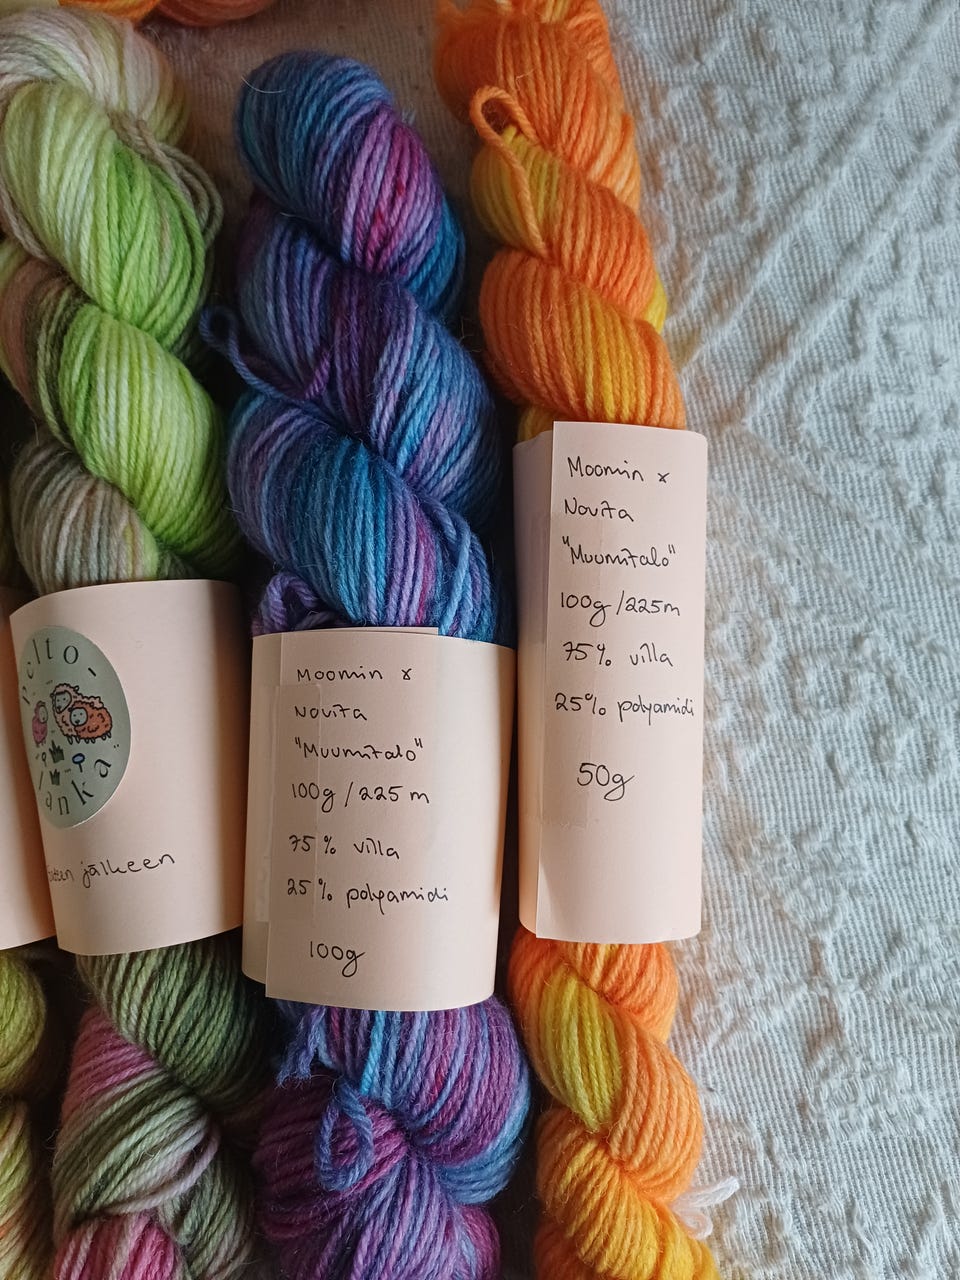 Pelto-
lanka
jälkeen
Moomin x
Novita
"Muumitalo"
100g / 225 m
75 % villa
25 % polyamidi
100g
Moomin x
Novita
"Muumitalo"
100g /225m
75% villa
25% polyamidi
50g